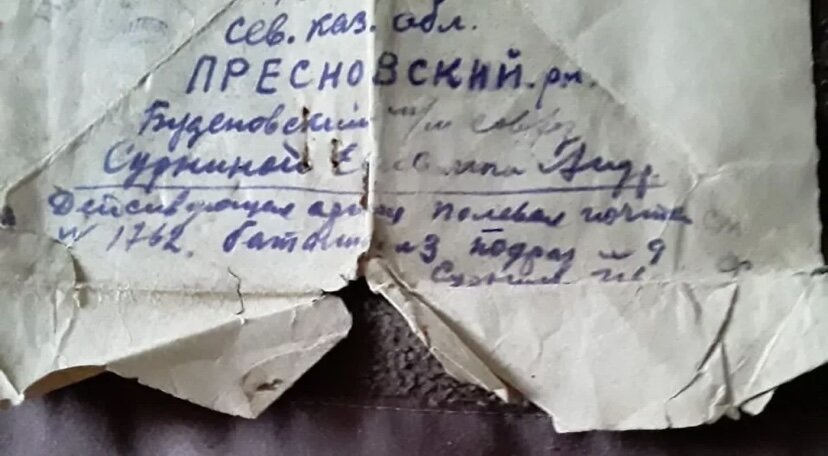 Сев. Каз. обл.
ПРЕСНОВСКИЙ. рн.
Буденовский
Сурниной Андр.
Действующая армия полевая почта
N 1762. баталион N3 подраз N 9
Сурнин